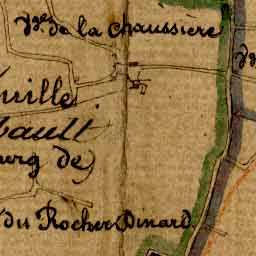 Vge. de la Chaussière
uille
bault
urg de
du Rocher Dinard